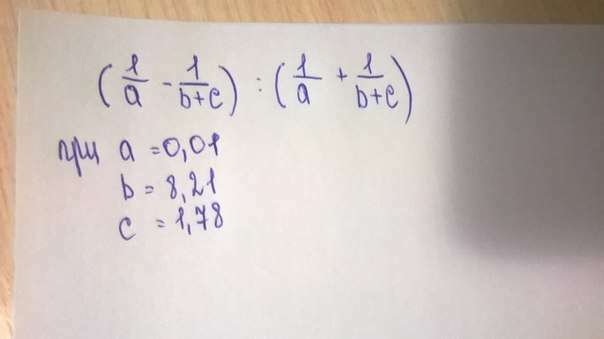 (1/a - 1/b+c) : (1/a + 1/b+c)
при a = 0,01
b = 8,21
c = 1,78